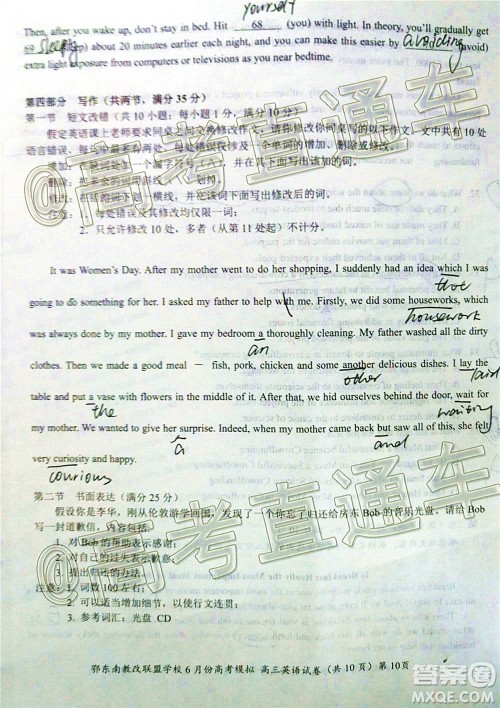 yourself
Then, after you wake up, don't stay in bed. Hit 68 (you) with light. In theory, you'll gradually get
69 about 20 minutes earlier each night, and you can make this easier by avoiding (avoid)
extra light exposure from computers or televisions as you near bedtime.
第四部分 写作（共两节，满分 35 分）
第一节 短文改错（共 10 小题；每小题 1 分，满分 10 分）
假定英语课上老师要求同桌之间交换修改作文，请你修改你同桌写的以下作文。文中共有 10 处
语言错误，每句中最多有两处。每处错误仅涉及一个单词的增加、删除或修改。
增加：在缺词处加一个漏字符号（∧），并在其下面写出该加的词。
删除：把多余的词用斜线（\）划掉。
修改：在错的词下划一横线，并在该词下面写出修改后的词。
注意：1. 每处错误及其修改均仅限一词；
2. 只允许修改 10 处，多者（从第 11 处起）不计分。
It was Women's Day. After my mother went to do her shopping, I suddenly had an idea which I was
that
going to do something for her. I asked my father to help with me. Firstly, we did some houseworks, which
housework
was always done by my mother. I gave my bedroom a thoroughly cleaning. My father washed all the dirty
an
clothes. Then we made a good meal — fish, pork, chicken and some another delicious dishes. I lay the
other laid
table and put a vase with flowers in the middle of it. After that, we hid ourselves behind the door, wait for
the waiting
my mother. We wanted to give her surprise. Indeed, when my mother came back but saw all of this, she felt
a and
very curiosity and happy.
courious
第二节 书面表达（满分 25 分）
假设你是李华，刚从伦敦游学回国，发现了一个你忘了归还给房东 Bob 的音乐光盘。请给 Bob
写一封道歉信，内容包括：
1. 对 Bob 的帮助表示感谢；
2. 对自己的过失表示歉意；
3. 提出归还的办法。
注意：1. 词数 100 左右；
2. 可以适当增加细节，以使行文连贯；
3. 参考词汇：光盘 CD
鄂东南教改联盟学校 6 月份高考模拟 高三英语试卷（共 10 页）第 10页
@高考直通车
@高考直通车
答案圈
MXQE.COM